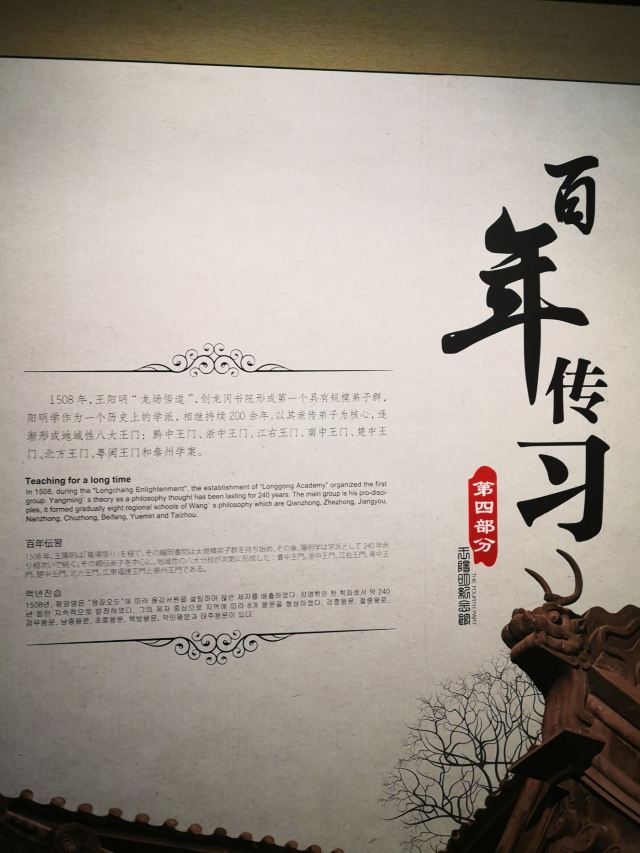 百年传习
第四部分
THE FOURTH PART
1508年,王阳明“龙场悟道”,创龙冈书院形成第一个具有规模弟子群,
阳明学作为一个历史上的学派,相继持续200余年。以其亲传弟子为核心,逐
渐形成地域性八大王门:黔中王门、浙中王门、江右王门、南中王门、楚中王
门、北方王门、粤闽王门和泰州学案。
Teaching for a long time
In 1508, during the "Longchang Enlightenment", the establishment of "Longgong Academy" organized the first
group. Yangming's theory as a philosophy thought has been lasting for 240 years. The main group is his pro-disci-
ples, it formed gradually eight regional schools of Wang's philosophy which are Qianzhong, Zhezhong, Jiangyou,
Nanzhong, Chuzhong, Beifang, Yuemin and Taizhou.
百年伝習
1508年、王陽明は「竜場悟り」を経て、その龍岡書院は大規模弟子群を持ち始め、その後、陽明学は学派として240年余
り相次いで続く。その親伝弟子を中心に、地域性の八大分枝が次第に形成した:貴中王門、浙中王門、江右王門、南中王
門、楚中王門、北方王門、広東福建王門と泰州王門である。
백년진습
1508년, 왕양명은 "용장오도"에 따라 용강서원을 설립하며 많은 제자를 배출하였다. 양명학은 한 학파로서 약 240
년 동안 지속적으로 발전하였다. 그의 제자 중심으로 지역에 따라 8개 왕문을 형성하였다. 검중왕문, 절중왕문,
강우왕문, 남중왕문, 초중왕문, 북방왕문, 악민왕문과 태주왕문이 있다.